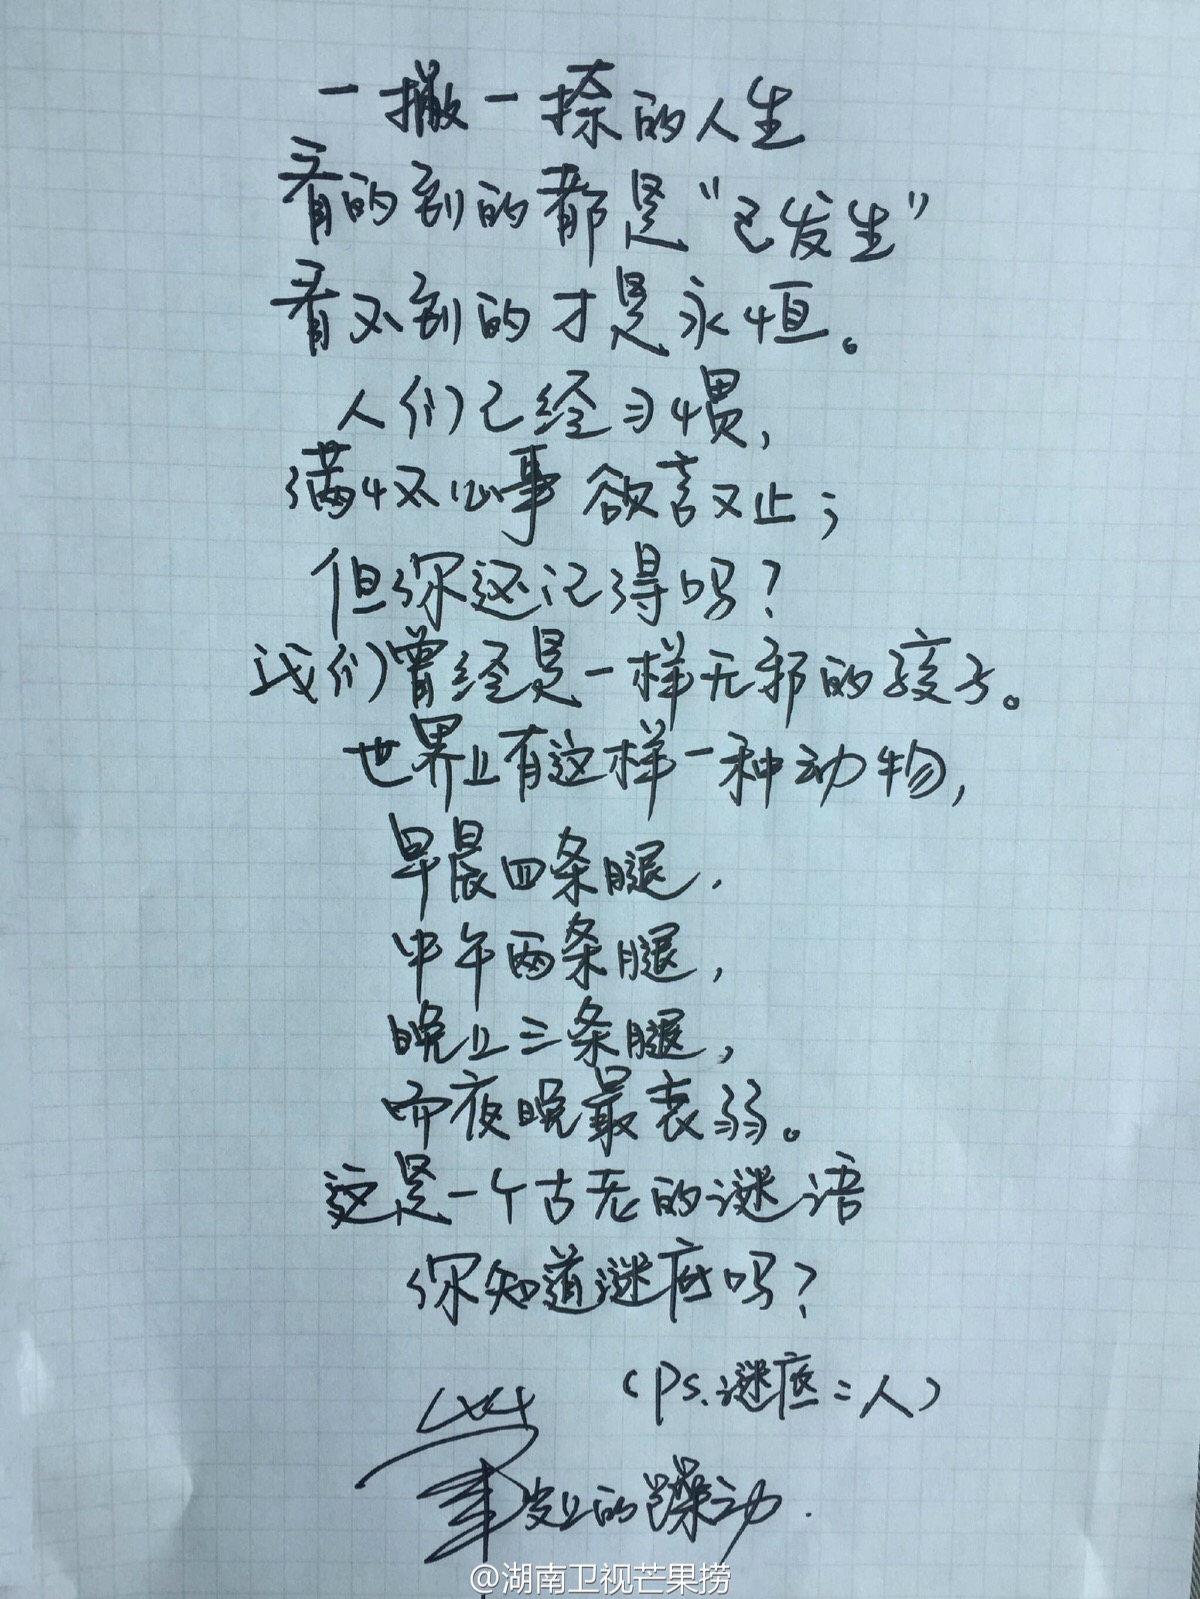 一撇一捺的人生
看的到的都是“已发生”
看不到的才是永恒。
人们已经习惯，
满怀心事 欲言又止；
但你还记得吗？
我们曾经是一样无邪的孩子。
世界上有这样一种动物，
早晨四条腿，
中午两条腿，
晚上三条腿，
而夜晚最衰弱。
这是一个古老的谜语
你知道谜底吗？
（Ps.谜底：人）
上的躁动.
@湖南卫视芒果捞